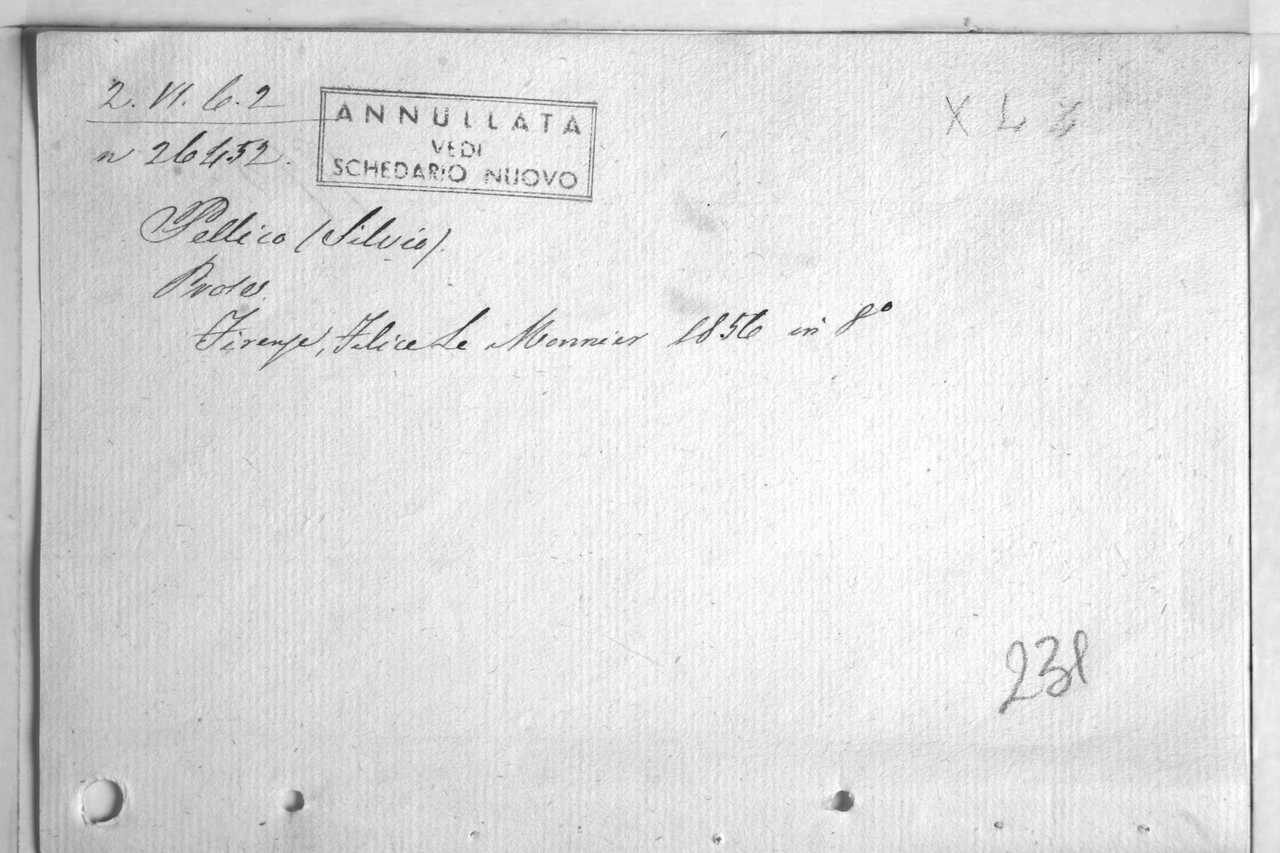 2. VI. 6. 2
n 26452.
ANNULLATA
VEDI
SCHEDARIO NUOVO
X L
Pellico (Silvio).
Prose
Firenze, Felice Le Monnier 1856 in 8º
231